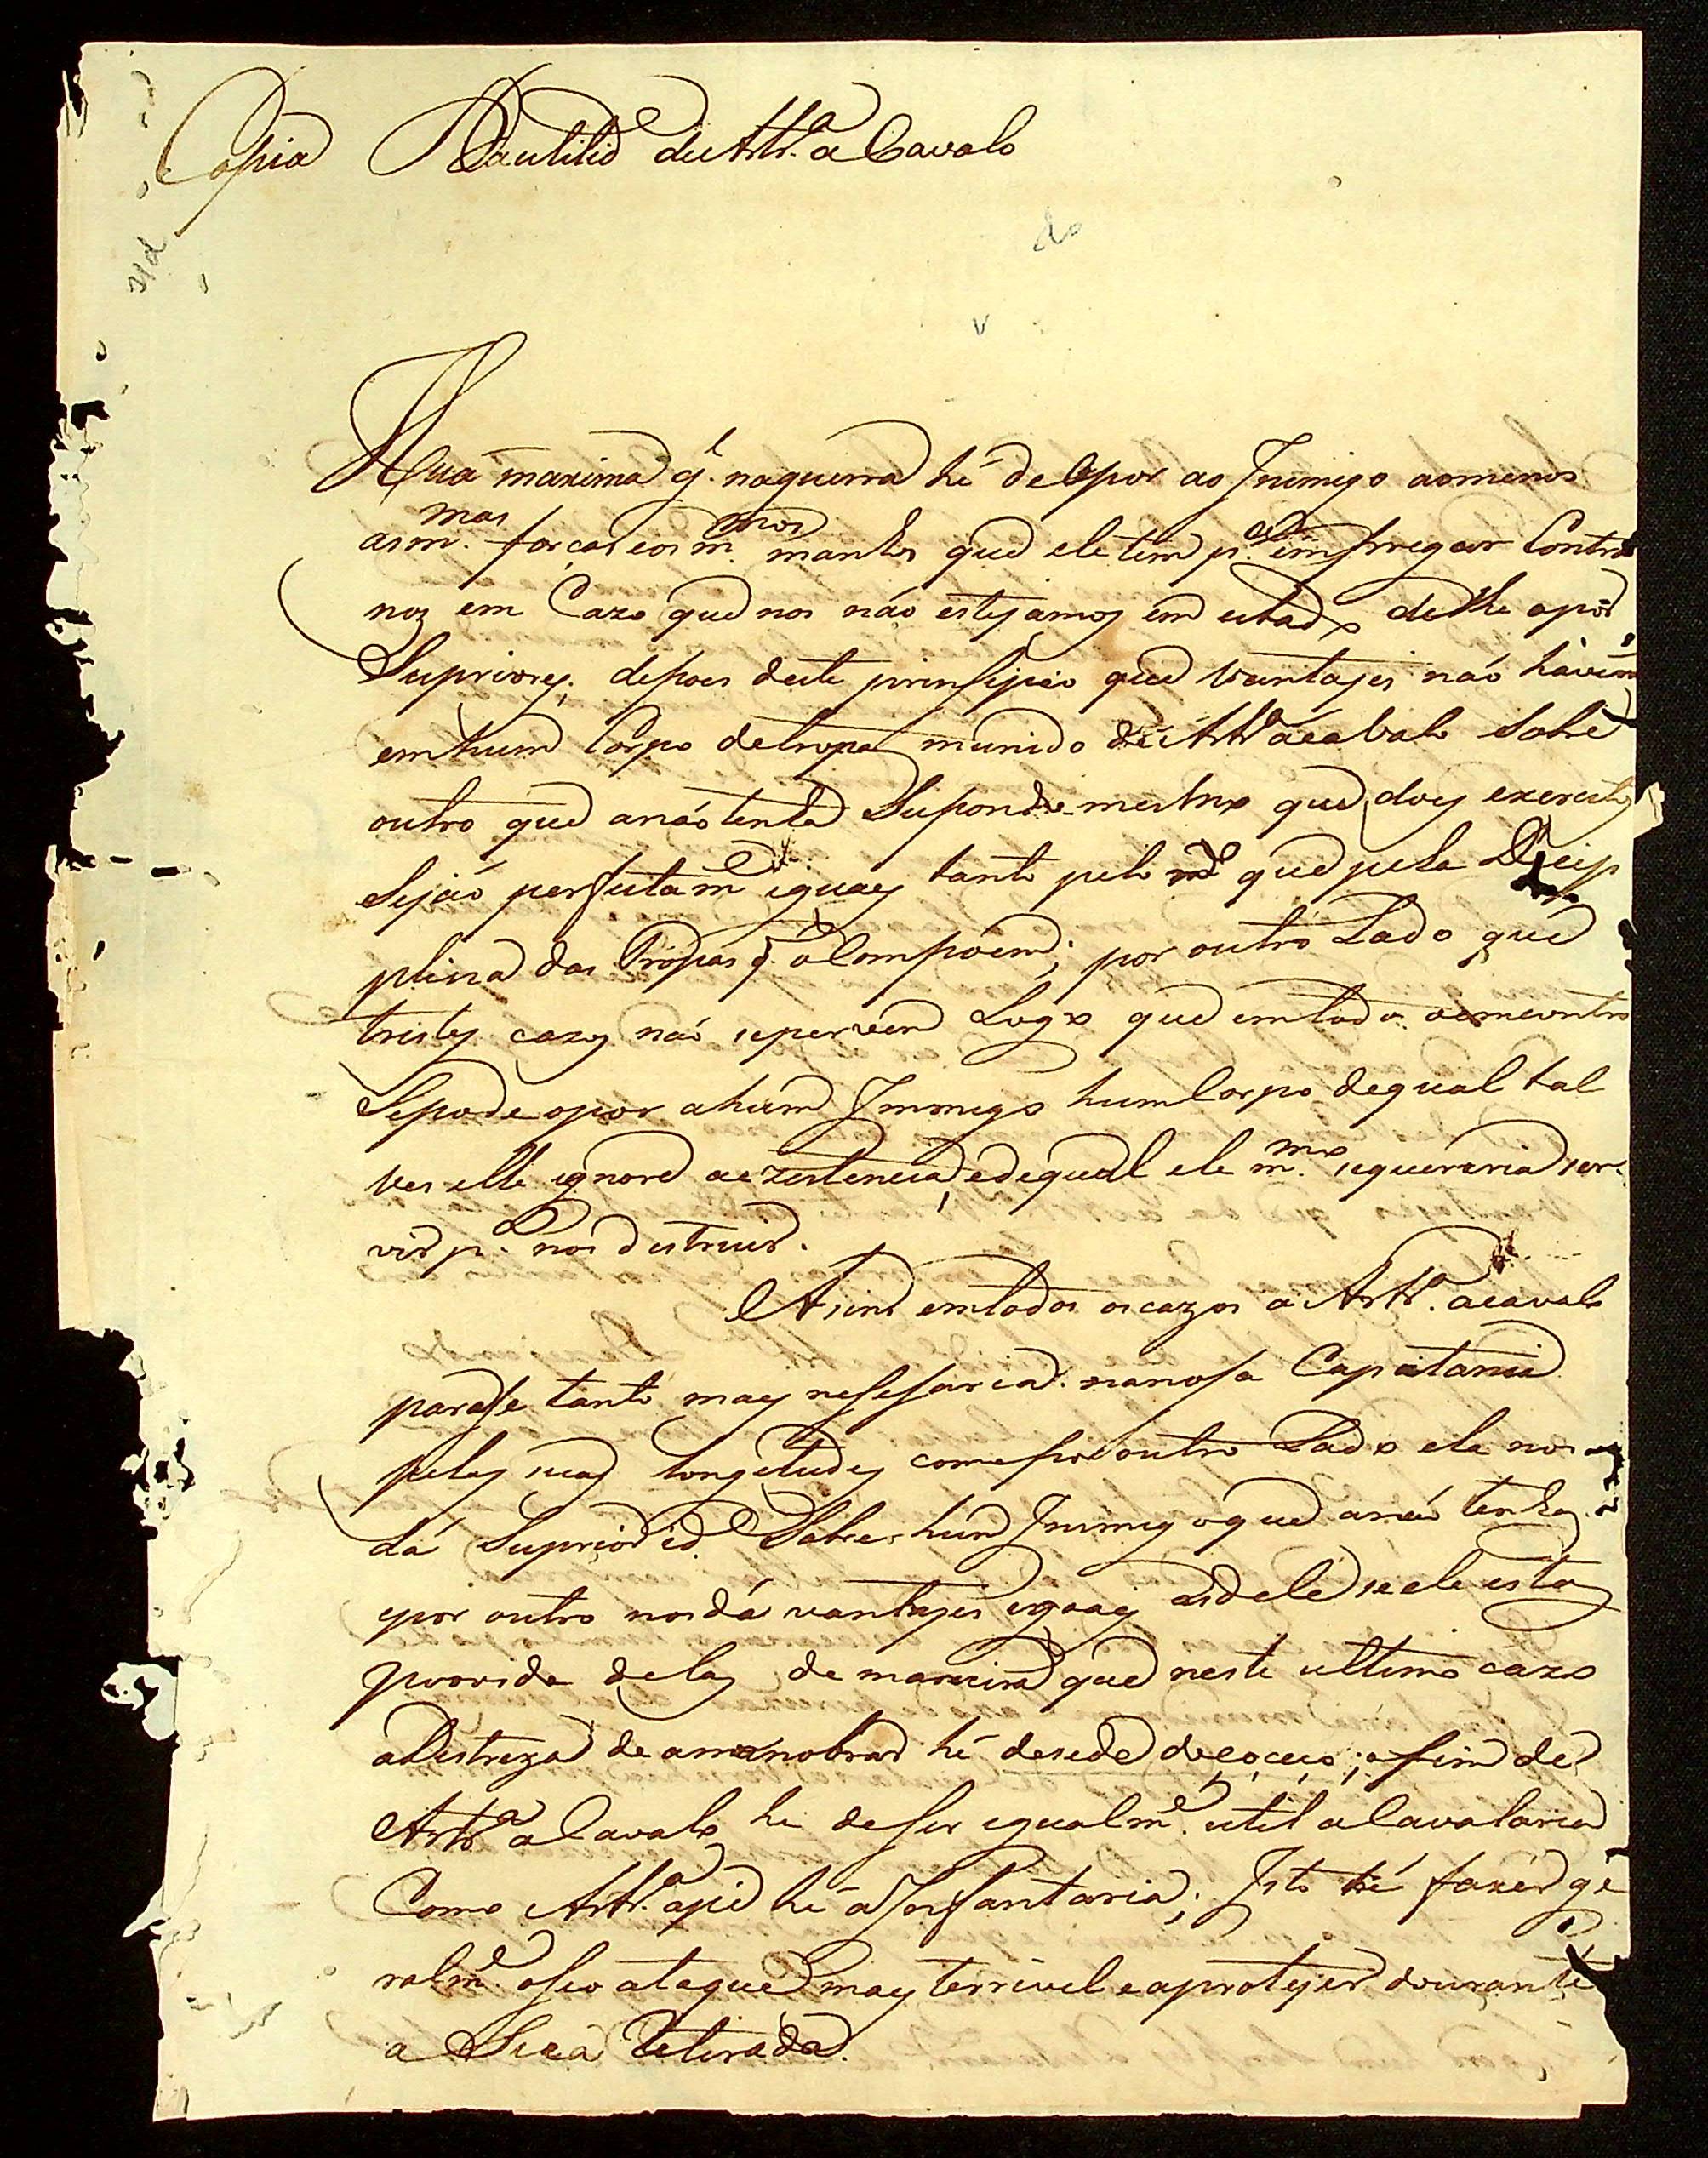 Copia Da utilid.e de Artr.a a Cavalo
Hua maxima q.' na guerra hé de Opor ao Inimigo aomenos
as m.mas forças e os m.mos mantes que ele tem p.a empregar Contra
noz em Cazo que nos não estejamos em estado de lhe opór
Supriores; depoes deste prinsipio que vantajes não há vim
em hum Corpo de tropa munido de Artr.a á Cavalo Sobre
outro que a não tenha Supondo mesmo que dois exercitos
Sejão perfeitam.e iguaes tanto pelo n.o que pela Decip
plina das Tropas q.' o Compóem; por outro Lado que
tristes cazos não se pervem Logo que em todo o emcontro
Se pode opor a hum Inimigo hum Corpo de qual tal
ves elle ignore a ezistencia, e de qual ele m.mo se quereria ser
vir p.a nos destruir.
Asim em todos os cazos a Artr.a a cavalo
parese tanto mais nesesaria na nosa Capitania
pelas suas longetudes como por outro Lado ela nos
dá Supriorid.e Sobre hum Inimigo que a não tenha
e por outro nos dá vantajes iguaes as dele se ele esta
provido delas de maneira que neste ultimo cazo
a Destreza de amanobrar hé deside do çuçeço; o fim de
Artr.a a Cavalo he de ser igualm.e util a Cavalaria
Como Artr.a apé hé a Infantaria; Isto hé fazer ge
ralm.e o seo ataque mais terrivel e a protejer dourante
a Sua Retirada.